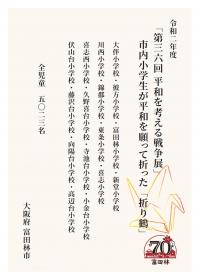 令和二年度
「第三六回 平和を考える戦争展」
市内小学生が平和を願って折った「折り鶴」
大伴小学校・彼方小学校・富田林小学校・新堂小学校
川西小学校・錦郡小学校・東条小学校・喜志小学校
喜志西小学校・久野喜台小学校・寺池台小学校・小金台小学校
伏山台小学校・藤沢台小学校・向陽台小学校・高辺台小学校
全児童 五〇二三名
大阪府 富田林市
70
富田林